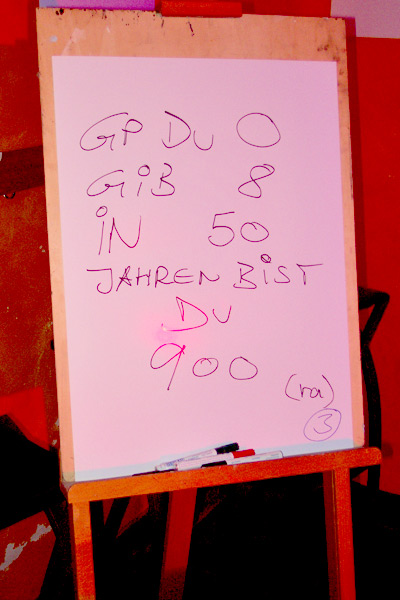 GP DU 0
GiB 8
iN 50
JAHREN BiST
DU
900
(ra)
3